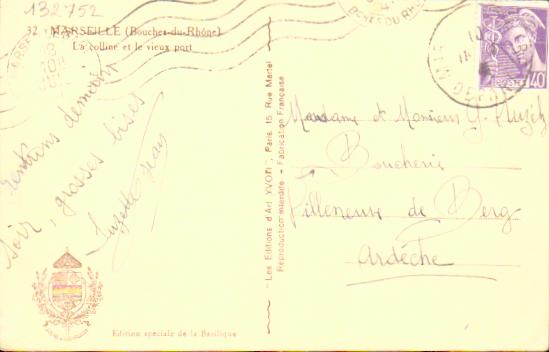 132752
32 - MARSEILLE (Bouches-du-Rhône)
La colline et le vieux port
rentrons demain
soir, grosses bises
Suzette Jean
"Les Editions d'Art YVON", Paris, 15, Rue Martel
Reproduction interdite - Fabrication Française
POSTES 40
Madame et Monsieur G.
Boucherie
Villeneuve de Berg
Ardèche
Edition spéciale de la Basilique